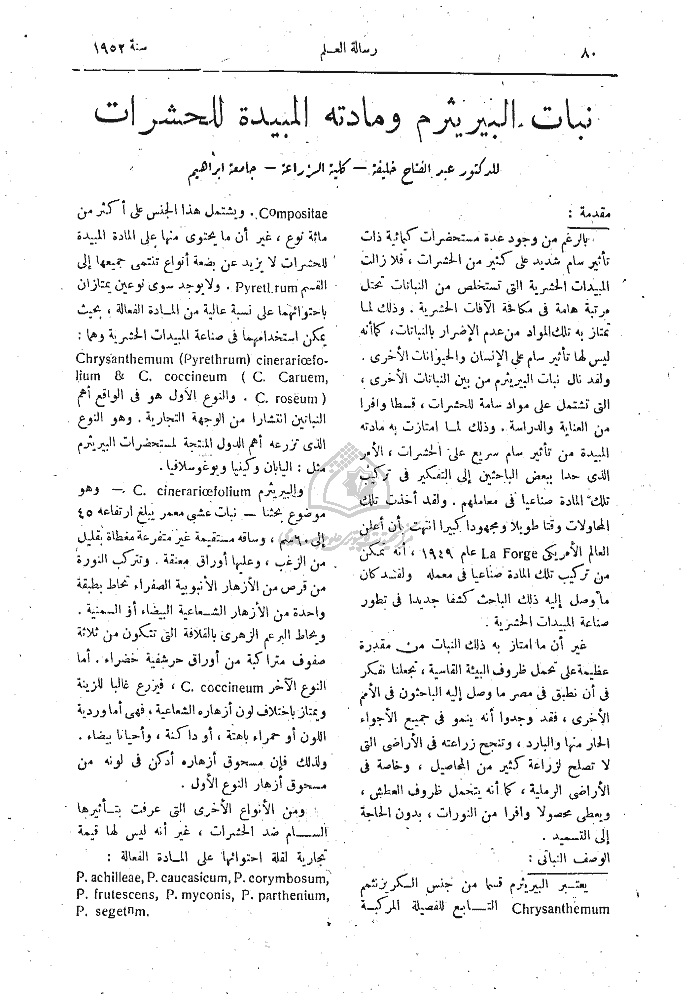 ٨٠
رسالة العـلم
سنة ١٩٥٢
نبات البيريثرم ومادته المبيدة للحشرات
للدكتور عبد الفتاح خليفة — كلية الزراعة — جامعة ابراهيم
مقدمة :
بالرغم من وجود عدة مستحضرات كيمائية ذات
تأثير سام شديد على كثير من الحشرات ، فلا زالت
المبيدات الحشرية التى تستخلص من النباتات تحتل
مرتبة هامة فى مكافحة الآفات الحشرية . وذلك لما
تمتاز به تلك المواد من عدم الإضرار بالنباتات، كما أنه
ليس لها تأثير سام على الإنسان والحيوانات الأخرى .
ولقد نال نبات البيريثرم من بين النباتات الأخرى ،
التى تشتمل على مواد سامة للحشرات ، قسطا وافرا
من العناية والدراسة . وذلك لما امتازت به مادته
المبيدة من تأثير سام سريع على الحشرات ، الأمر
الذى حدا ببعض الباحثين إلى التفكير فى تركيب
تلك المادة صناعيا فى معاملهم . ولقد أخذت تلك
المحاولات وقتا طويلا ومجهودا كبيرا انتهت بأن أعلن
العالم الأمريكى La Forge عام ١٩٤٩ ، أنه تمكن
من تركيب تلك المادة صناعيا فى معمله ولقد كان
ما وصل إليه ذلك الباحث كشفا جديدا فى تطور
صناعة المبيدات الحشرية .
غير أن ما امتاز به ذلك النبات من مقدرة
عظيمة على تحمل ظروف البيئة القاسية ، تجعلنا نفكر
فى أن نطبق فى مصر ما وصل إليه الباحثون فى الأمم
الأخرى ، فقد وجدوا أنه ينمو فى جميع الأجواء
الحار منها والبارد ، وتنجح زراعته فى الأراضى التى
لا تصلح لزراعة كثير من المحاصيل ، وخاصة فى
الأراضى الرملية ، كما أنه يتحمل ظروف العطش ،
ويعطى محصولا وافرا من النورات ، بدون الحاجة
إلى التسميد .
الوصف النباتى :
يعتـبر البيريثرم قسما من جنس الكريزنثمم
Chrysanthemum التـــابع للفصيلة المركبة
Compositae . ويشتمل هذا الجنس على أكثر من
مائة نوع ، غير أن ما يحتوى منها على المادة المبيدة
للحشرات لا يزيد عن بضعة أنواع تنتمى جميعها إلى
القسم Pyretlrum . ولا يوجد سوى نوعين يمتازان
باحتوائهما على نسبة عالية من المـادة الفعالة ، بحيث
يمكن استخدامهما فى صناعة المبيدات الحشرية وهما :
Chrysanthemum (Pyrethrum) cinerariœfo-
lium & C. coccineum ( C. Caruem,
C. roseum ) . والنوع الأول هو فى الواقع أهم
النباتين انتشارا من الوجهة التجارية . وهو النوع
الذى تزرعه أهم الدول المنتجة لمستحضرات البيريثرم
مثل : اليابان وكينيا ويوغوسلافيا .
والبيريثرم C. cinerariœfolium — وهو
موضوع بحثنا — نبات عشبى معمر يبلغ ارتفاعه ٤٥
إلى ٦٠ سم ، وساقه مستقيمة غير متفرعة مغطاة بقليل
من الزغب ، وعليها أوراق معنقة . وتتركب النورة
من قرص من الأزهار الأنبوبية الصفراء تحاط بطبقة
واحدة من الأزهار الشـعاعية البيضاء أو السمنية .
ويحاط البرعم الزهرى بالقلافة التى تتكون من ثلاثة
صفوف متراكبة من أوراق حرشفية خضراء . أما
النوع الآخر C. coccineum ، فيزرع غالبا للزينة
ويمتاز باختلاف لون أزهاره الشعاعية ، فهى أما وردية
اللون أو حمراء باهتة ، أو داكنة ، وأحيانا بيضاء .
ولذلك فإن مسحوق أزهاره أدكن فى لونه من
مسحوق أزهار النوع الأول .
ومن الأنواع الأخرى التى عرفت بتـأثيرها
الســـام ضد الحشرات ، غير أنه ليس لها قيمة
تجارية لقلة احتوائها على المـادة الفعالة :
P. achilleae, P. caucasicum, P. corymbosum,
P. frutescens, P. myconis, P. parthenium,
P. segetnm.